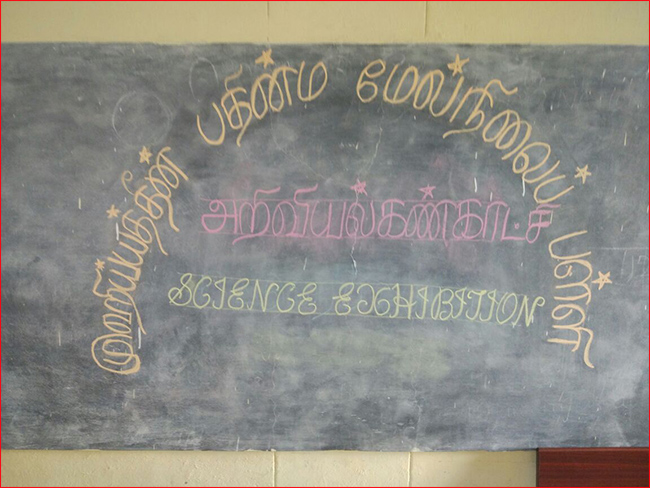 முஹிய்யித்தீன் பதின்ம மேல்நிலைப் பள்ளி
அறிவியல்கண்காட்சி
SCIENCE EXHIBITION